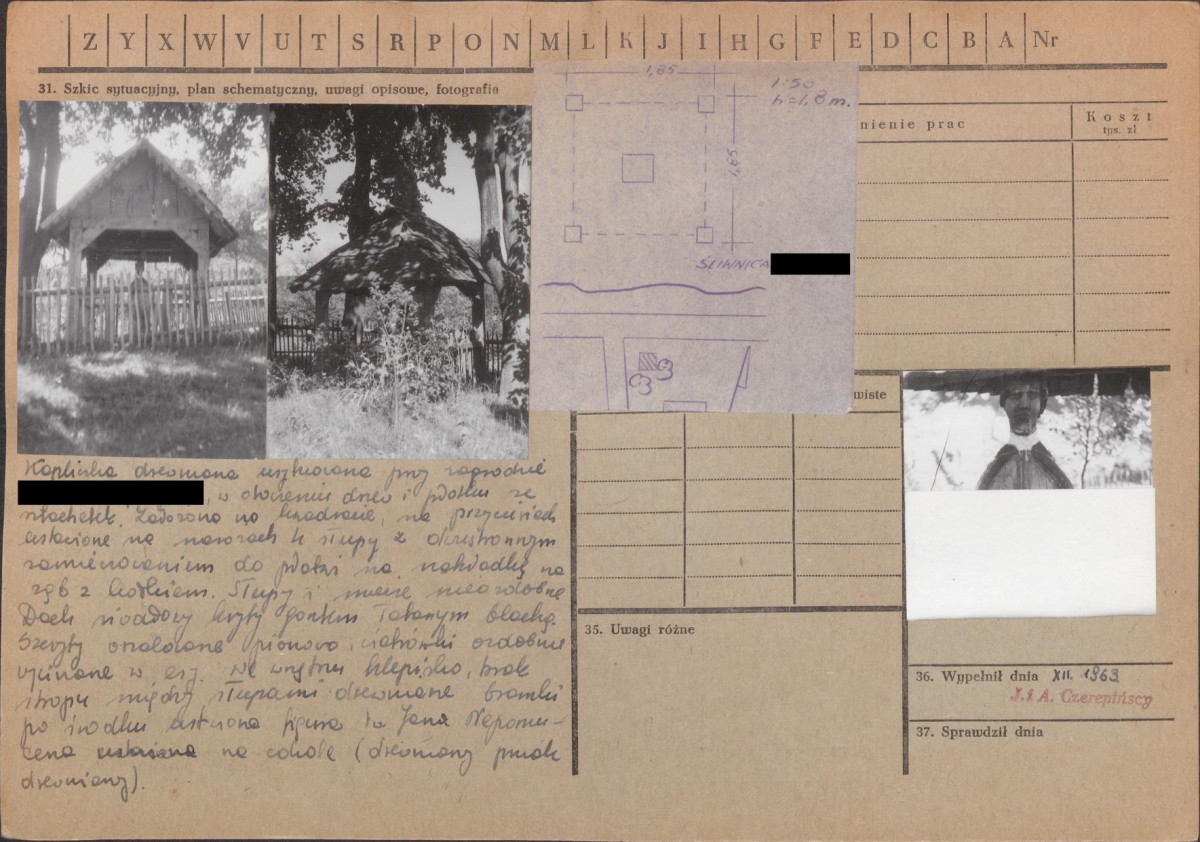 Z Y X W V U T S R P O N M L K J I H G F E D C B A Nr
31. Szkic sytuacyjny, plan schematyczny, uwagi opisowe, fotografia
1,85
1:50
h=1,8 m.
1,85
ŚLIWNICA
nienie prac
Koszt
tys. zł
wiste
Kapliczka drewniana usytuowana przy zagrodzie
, w otoczeniu drzew i płotku ze
sztachetek. Założona na kwadracie, na przyciesiach
ustawione na narożach 4 słupy z
do płatwi na nakładkę na
ząb z kołkiem. Słupy i miecze nieozdobne
Dach siodłowy kryty gontem łatanym blachą.
Szczyty oszalowane pionowo, wiatrówki ozdobnie
wycinane w esy. We wnętrzu klepisko, brak
stropu między słupami drewniane bramki
po środku ustawiona figura św Jana Nepomu-
cena na cokole (drewniany pniak
drewniany).
35. Uwagi różne
36. Wypełnił dnia XII. 1963
J. i A. Czerepińscy
37. Sprawdził dnia